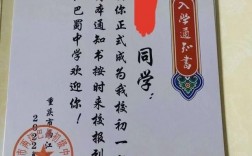 入学通知書
同学：
你正式成为我校初一
本通知书按时来校报到
巴蜀中学欢迎你！
重庆市两江